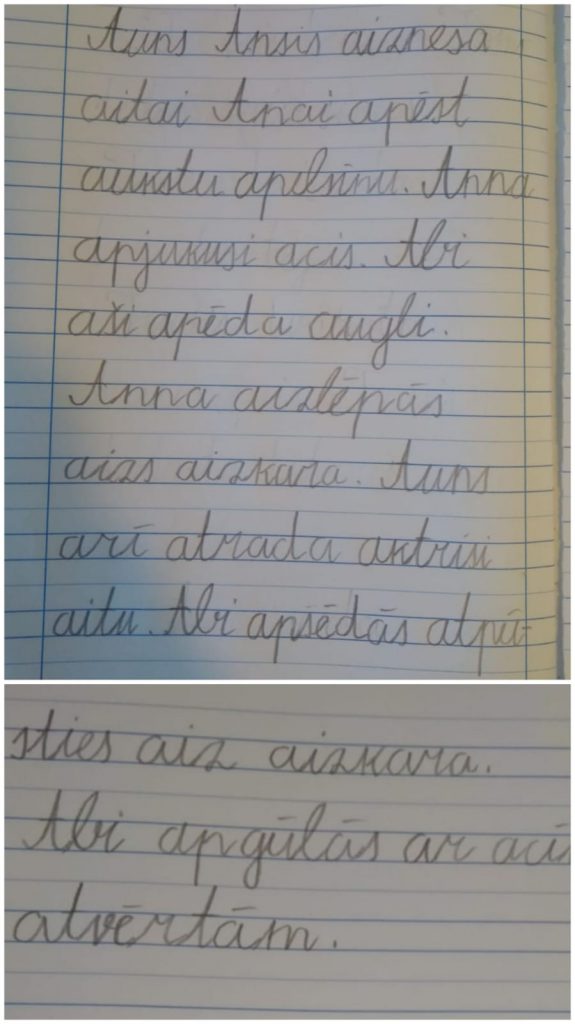 Auns Ansis aiznesa
aitai Anai apēst
aukstu apelsīnu. Anna
apjukusi acis. Abi
aši apēda augli.
Anna aizlēpās
aizs aizkara. Auns
arī atrada aktrisi
aitu. Abi apsēdās atpū-
sties aiz aizkara.
Abi apgūlās ar acīs
atvērtām.